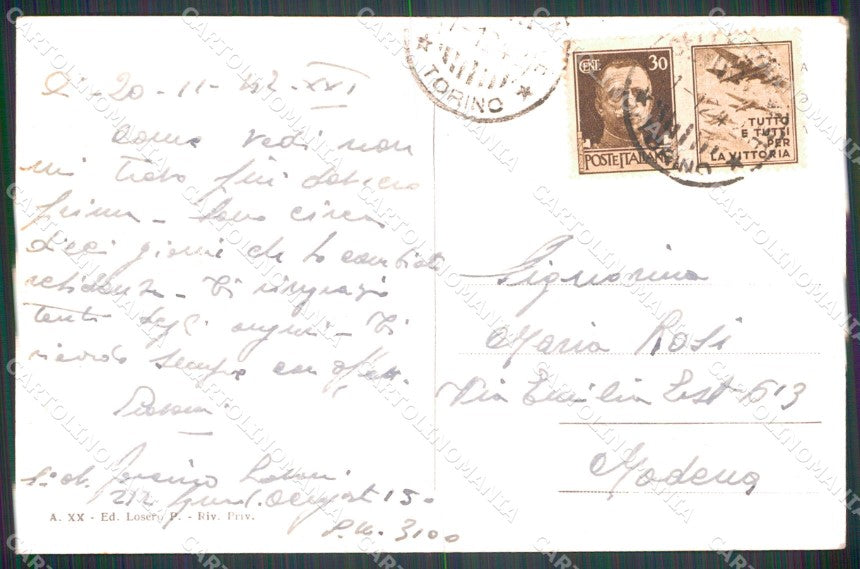 20-11-42-XXI
Come vedi non
mi trovo più dov'ero
prima - Sono circa
dieci giorni che ho cambiato
residenza - Ti ringrazio
tanto degli auguri - Ti
ricordo sempre con
Signorina
Maria Rosi
Via Emilia Est 613
Modena
P.M. 3100
A. XX - Ed. Losero P. - Riv. Priv.
TORINO
CENT. 30
POSTE ITALIANE
TUTTO
E TUTTI
PER
LA VITTORIA
TORINO
CARTOLINOMANIA